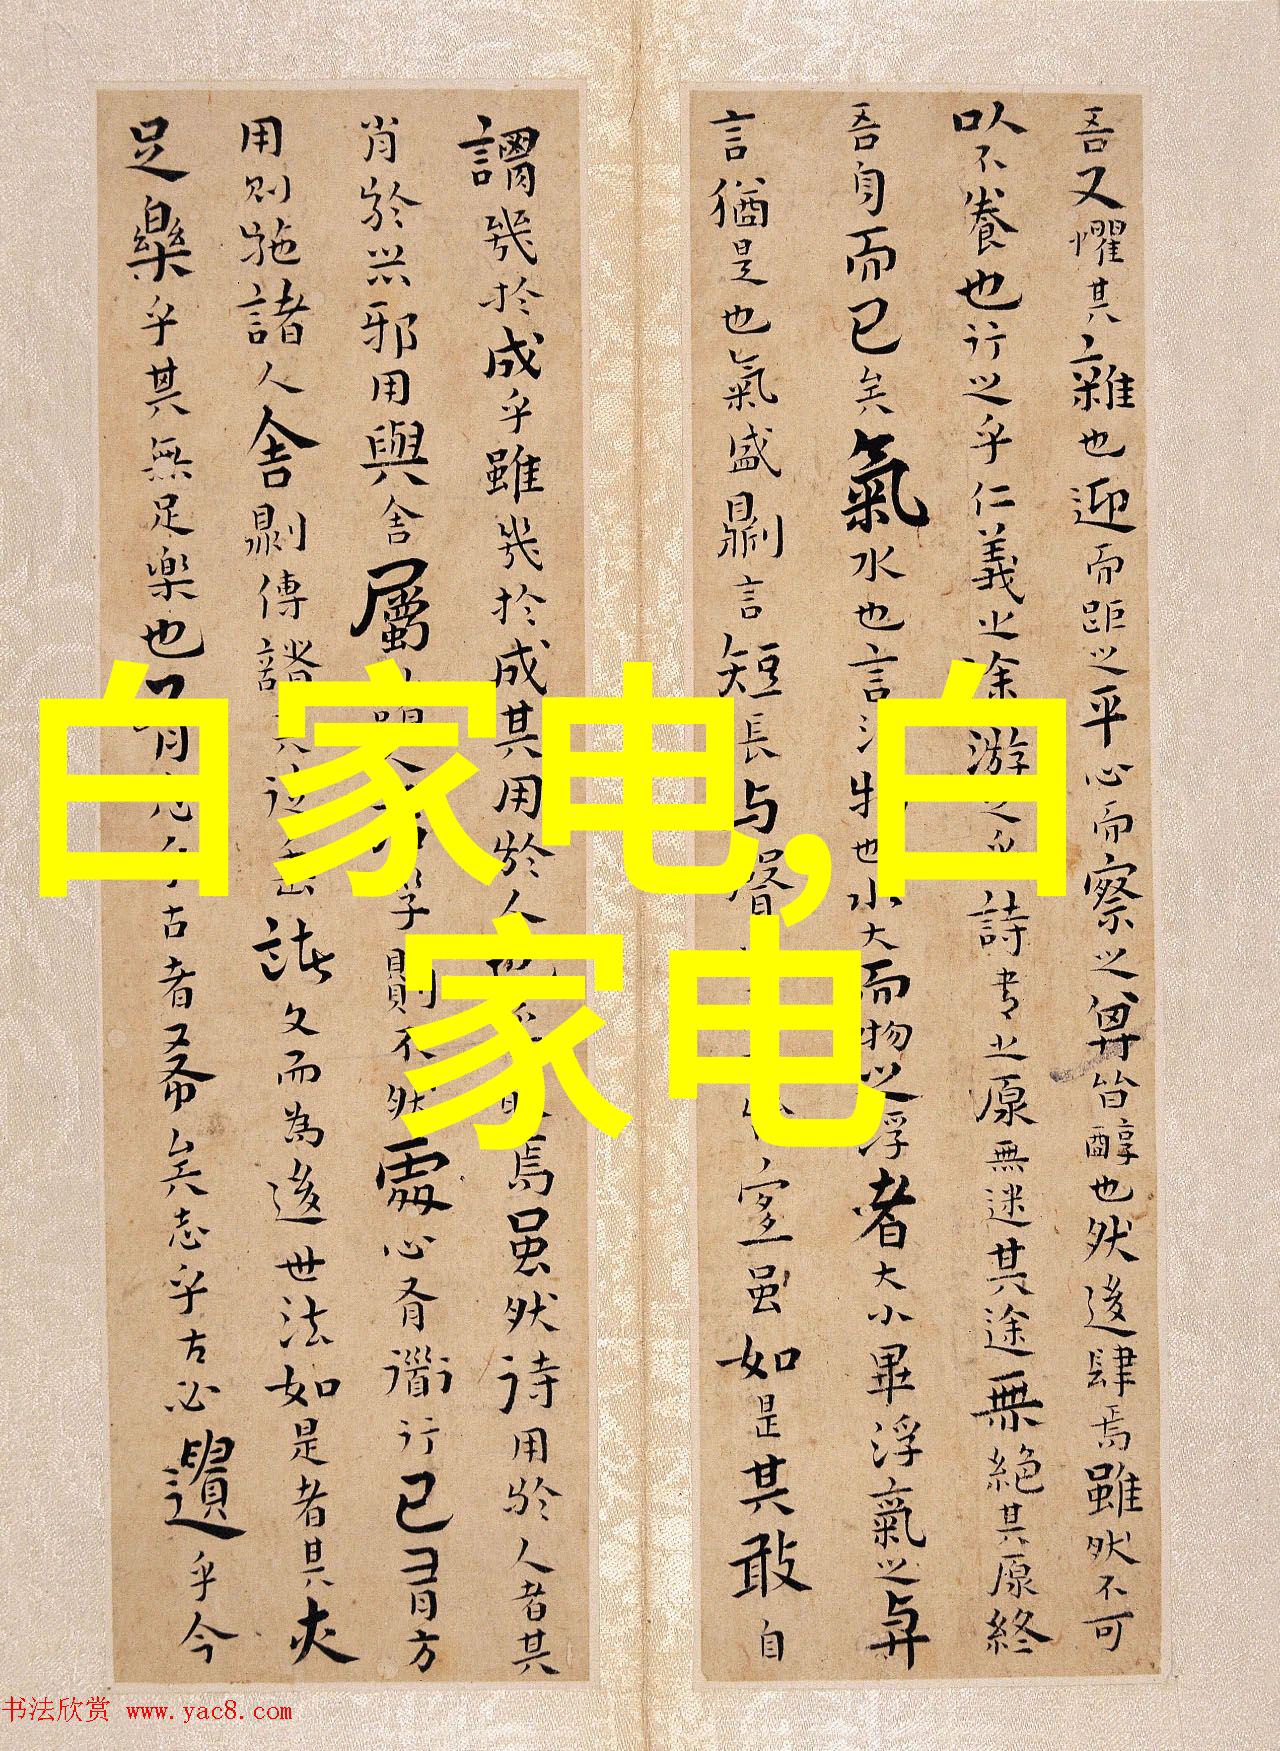 白家电,白
家电
吾又懼其雜也迎而距之平心而察之其皆醇也然後肆焉雖然不可
以不養也行之乎仁義之途游之乎詩書之原無迷其途無絕其原終
吾身而已矣氣水也言浮物也水大而物之浮者大小畢浮氣之與
言猶是也氣盛則言短長與聲宜虽如是其敢自
謂幾於成乎雖幾於成其用於人焉虽然待用於人者其
肖於器邪用與舍屬子則不然處心有道行已有方
用則施諸人舍則傳諸其徒垂諸文而為後世法如是者其亦
足樂乎其無足樂也有古者希矣志乎古必遺乎今
书法欣赏 www.yac8.com